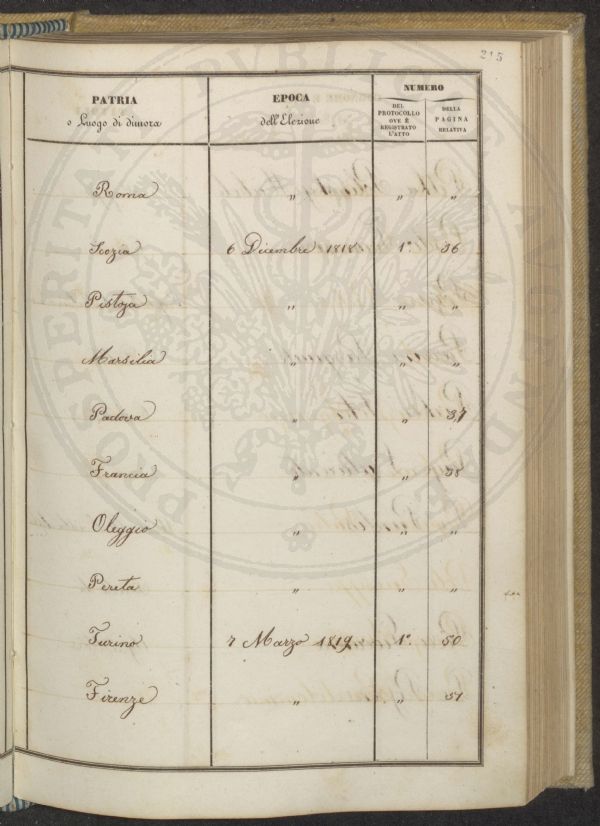 215
PATRIA
o Luogo di dimora
EPOCA
dell'Elezione
NUMERO
DEL
PROTOCOLLO
OVE È
REGISTRATO
L'ATTO
DELLA
PAGINA
RELATIVA
Roma " " "
Scozia 6 Dicembre 1818 1° 36
Pistoja " " "
Marsilia " " "
Padova " " 37
Francia " " 38
Oleggio " " "
Pereta " " "
Turino 7 Marzo 1819. 1° 50
Firenze " " 51
PROSPERITATI PUBLICAE AUGENDAE